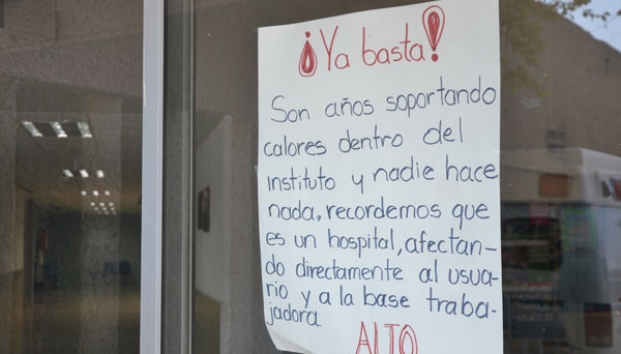 ¡Ya basta!
Son años soportando
calores dentro del
instituto y nadie hace
nada, recordemos que
es un hospital, afectan-
do directamente al usua-
rio y a la base traba-
jadora.
ALTO